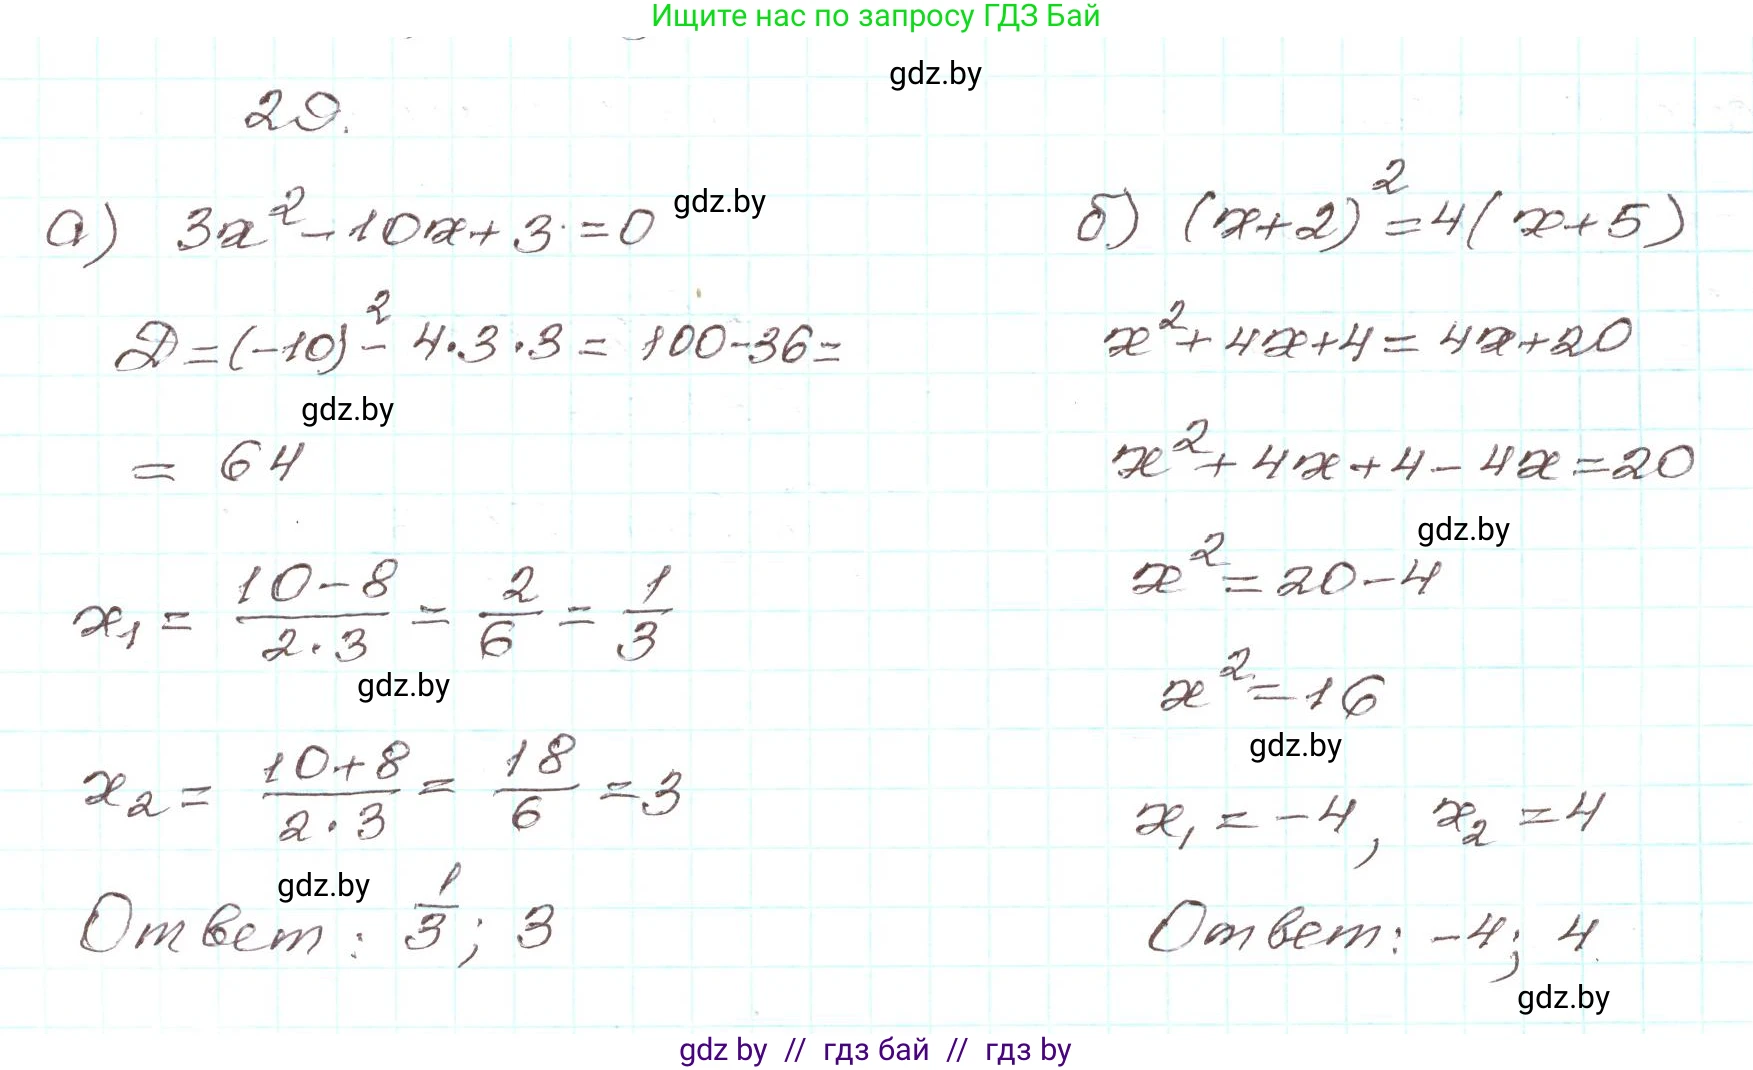 Ищите нас по запросу ГДЗ Бай
gdz.by
29.
а) 3x² - 10x + 3 = 0
gdz.by
D = (-10)² - 4·3·3 = 100 - 36 =
gdz.by
= 64
x₁ = (10 - 8)/(2·3) = 2/6 = 1/3
gdz.by
x₂ = (10 + 8)/(2·3) = 18/6 = 3
gdz.by
Ответ: 1/3; 3
б) (x+2)² = 4(x+5)
x² + 4x + 4 = 4x + 20
x² + 4x + 4 - 4x = 20
gdz.by
x² = 20 - 4
x² = 16
gdz.by
x₁ = -4, x₂ = 4
Ответ: -4; 4
gdz.by
gdz by // гдз бай // гдз by